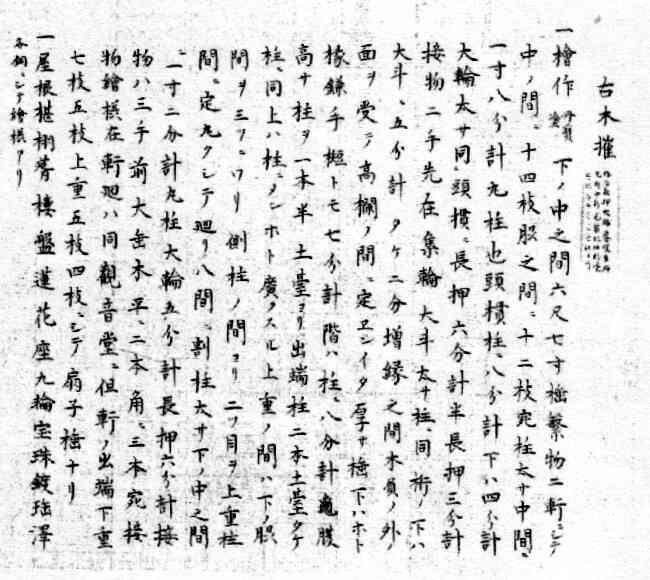 古木摧
一檜作 下ノ中之間六尺七寸棰繁物ニ軒ニシテ
中ノ間ニ十四枝服之間ニ十二枝宛柱太サ中間ニ
一寸八分計丸柱也頭横柱ニ八分計下ハ四分計
大輪太サ同頭横ニ長押六分計半長押三分計
接物二手先在集輪大斗太サ柱ニ同術ノ下ハ
大斗ニ五分計タケ二分増縁之間木負ノ外ノ
面ヲ受テ高欄ノ間ニ定ヱンイタ厚サ棰下ハホト
椽鎌手概トモ七分計階ハ柱ニ八分計亀腹
高サ柱ヲ一本半土臺ヨリ出端柱二本土臺タケ
柱ニ同上ハ柱ニメンホト廣クスル上重ノ間ハ下ノ服
間ヲ三ツニワリ側柱ノ間ヨリ二ツ目ヲ上重柱
間ニ定丸クシテ廻リ八間ニ割柱太サ下ノ中之間
一寸二分計丸柱大輪五分計長押六分計接
物ハ三手前大垂木平ニ二本角ニ三本宛接
物繪様在軒廻ハ同觀音堂ニ但軒ノ出端下重
七枝五枝上重五枝四枝ニシテ扇子棰ナリ
一屋根椹栩葺棲盤蓮花座九輪宝珠鎖瑶澤
各銅ニシテ繪様アリ